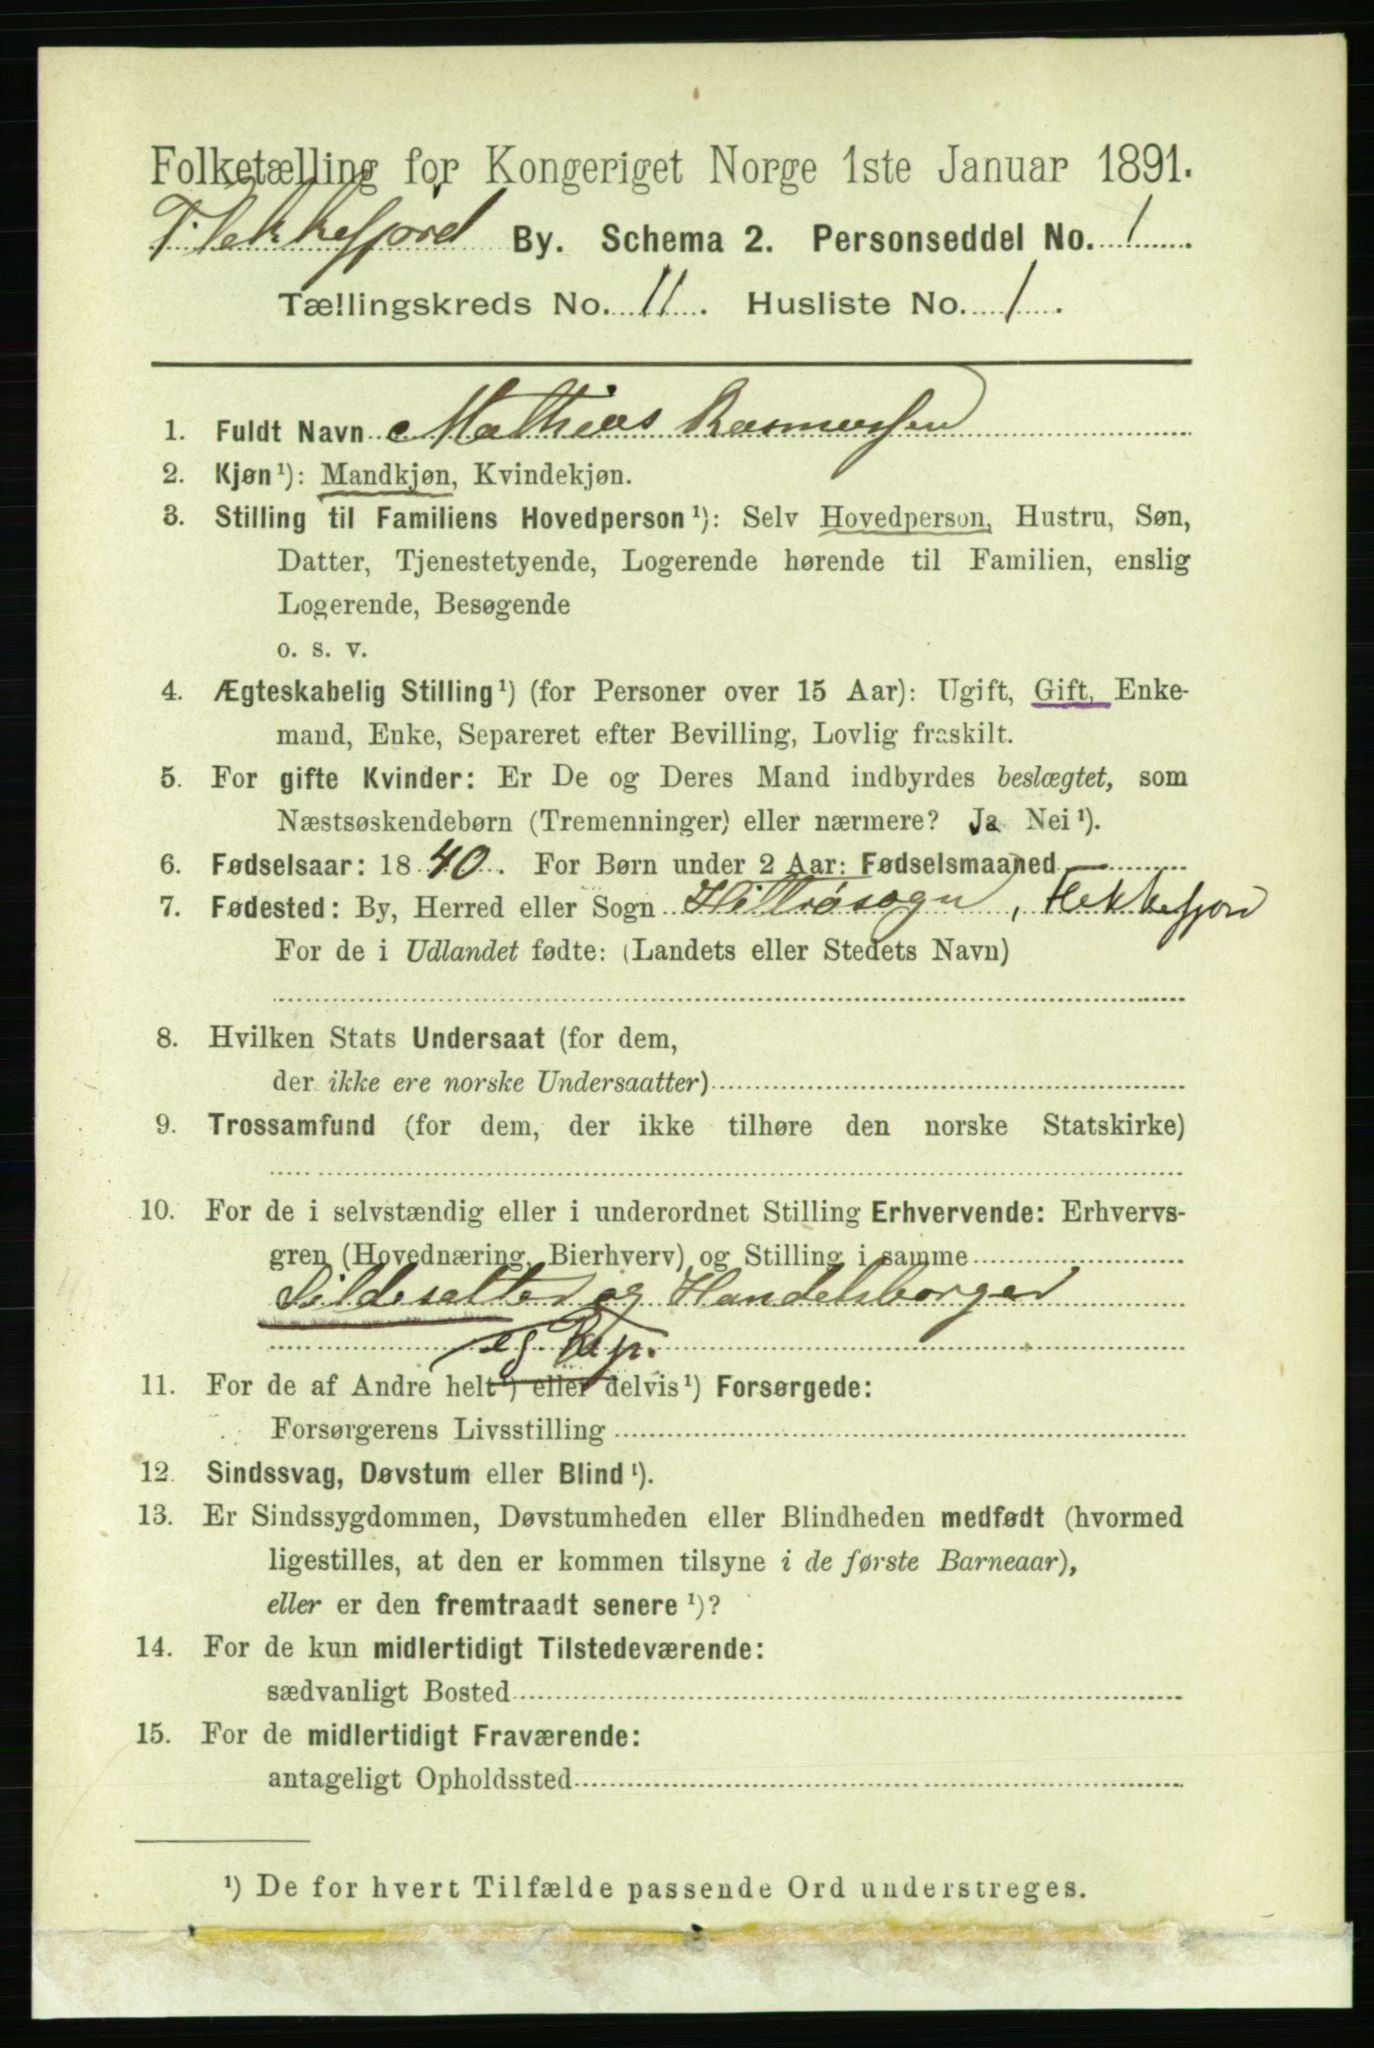 Folketælling for Kongeriget Norge 1ste Januar 1891.
Flekkefjord By. Schema 2. Personseddel No. 1
Tællingskreds No. 11. Husliste No. 1.
1. Fuldt Navn Mathias Rasmussen
2. Kjøn ¹): Mandkjøn, Kvindekjøn.
3. Stilling til Familiens Hovedperson ¹): Selv Hovedperson, Hustru, Søn,
Datter, Tjenestetyende, Logerende hørende til Familien, enslig
Logerende, Besøgende
o. s. v.
4. Ægteskabelig Stilling ¹) (for Personer over 15 Aar): Ugift, Gift, Enke-
mand, Enke, Separeret efter Bevilling, Lovlig fraskilt.
5. For gifte Kvinder: Er De og Deres Mand indbyrdes beslægtet, som
Næstsøskendebørn (Tremenninger) eller nærmere? Ja Nei ¹).
6. Fødselsaar: 1840. For Børn under 2 Aar: Fødselsmaaned —
7. Fødested: By, Herred eller Sogn Hitterøsogn, Flekkefjord
For de i Udlandet fødte: (Landets eller Stedets Navn)
8. Hvilken Stats Undersaat (for dem,
der ikke ere norske Undersaatter)
9. Trossamfund (for dem, der ikke tilhøre den norske Statskirke)
10. For de i selvstændig eller i underordnet Stilling Erhvervende: Erhvervs-
gren (Hovednæring, Bierhverv) og Stilling i samme
Sildesalter og Handelsborger
eg.
11. For de af Andre helt ¹) eller delvis ¹) Forsørgede:
Forsørgerens Livsstilling
12. Sindssvag, Døvstum eller Blind ¹).
13. Er Sindssygdommen, Døvstumheden eller Blindheden medfødt (hvormed
ligestilles, at den er kommen tilsyne i de første Barneaar),
eller er den fremtraadt senere ¹)?
14. For de kun midlertidigt Tilstedeværende:
sædvanligt Bosted
15. For de midlertidigt Fraværende:
antageligt Opholdssted
¹) De for hvert Tilfælde passende Ord understreges.